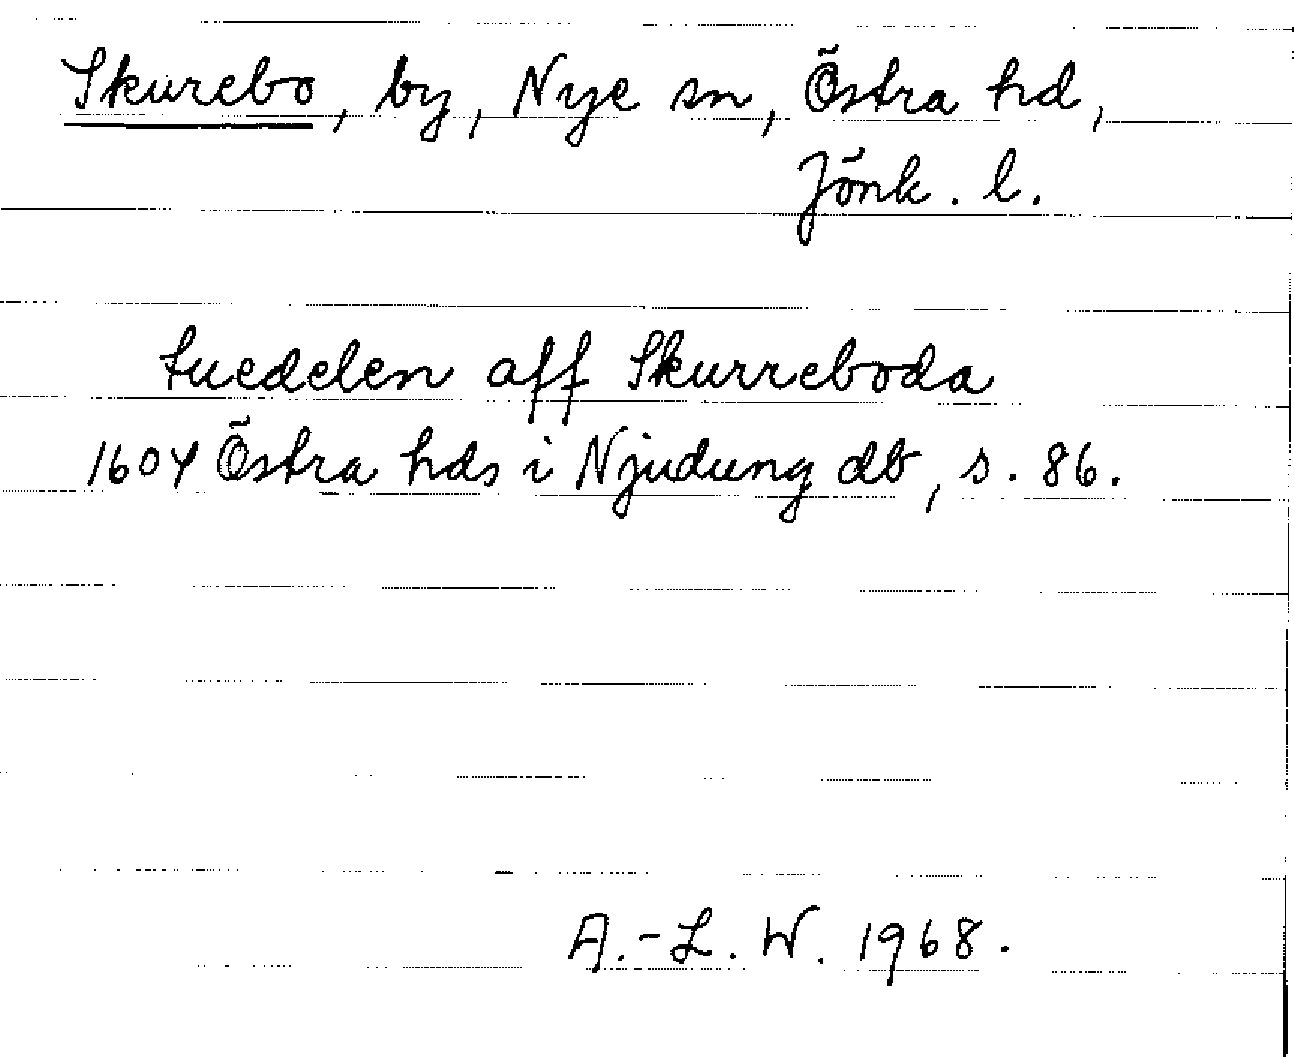 Skurebo, by, Nye sn, Östra hd,
Jönk. l.
Suedelen aff Skurreboda
1604 Östra hds i Njudung db, s. 86.
A.-L. W. 1968.